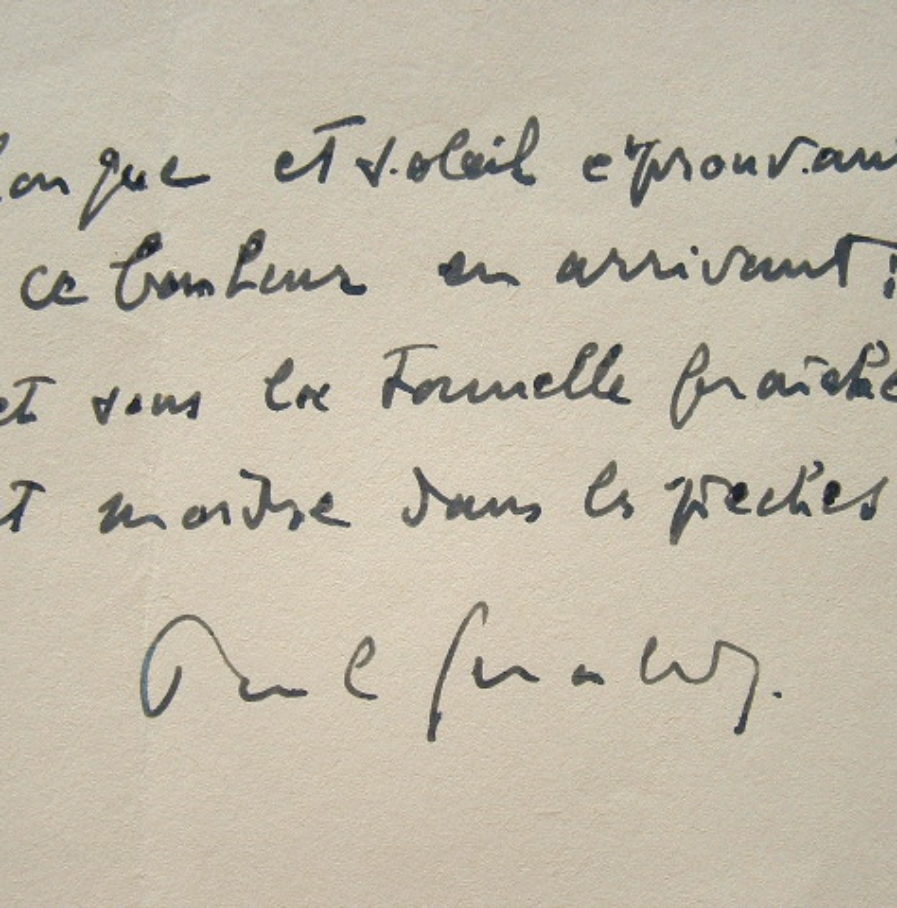 longue et soleil éprouvant
ce bonheur en arrivant :
et sous la tonnelle fraîche
et mordre dans les pêches
Paul Géraldy.